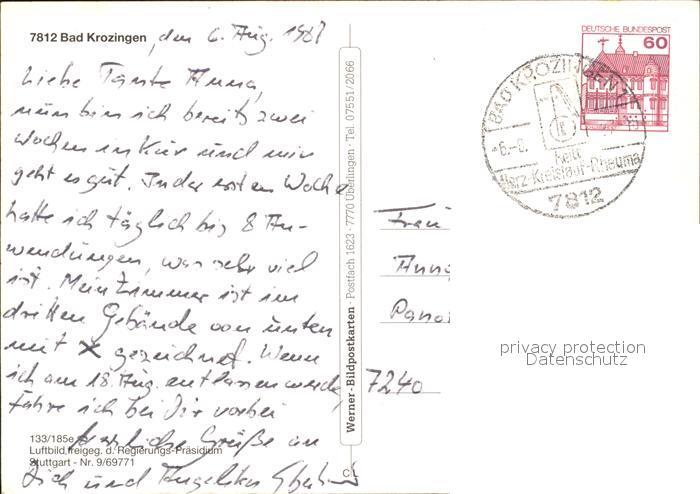 7812 Bad Krozingen, den 6. Aug. 1987
Liebe Tante Anna,
nun bin ich bereits zwei
Wochen in Kur und mir
geht es gut. In der ersten Woche
hatte ich täglich bis 8 An-
wendungen, was sehr viel
ist. Mein Zimmer ist im
dritten Gebäude von unten
mit X gezeichnet. Wenn
ich am 18. Aug. entlassen werde,
fahre ich bei Dir vorbei
herzliche Grüße an
Dich und Angelika
133/185e
Luftbild freigeg. d. Regierungs-Präsidium
Stuttgart - Nr. 9/69771
Werner-Bildpostkarten · Postfach 1623 · 7770 Überlingen · Tel. 07551/2066
C L
DEUTSCHE BUNDESPOST
60
BAD KROZINGEN 1
-6.-8.
heilt
Herz-Kreislauf-Rheuma
7812
Frau
Anna
Pano
7240
privacy protection
Datenschutz